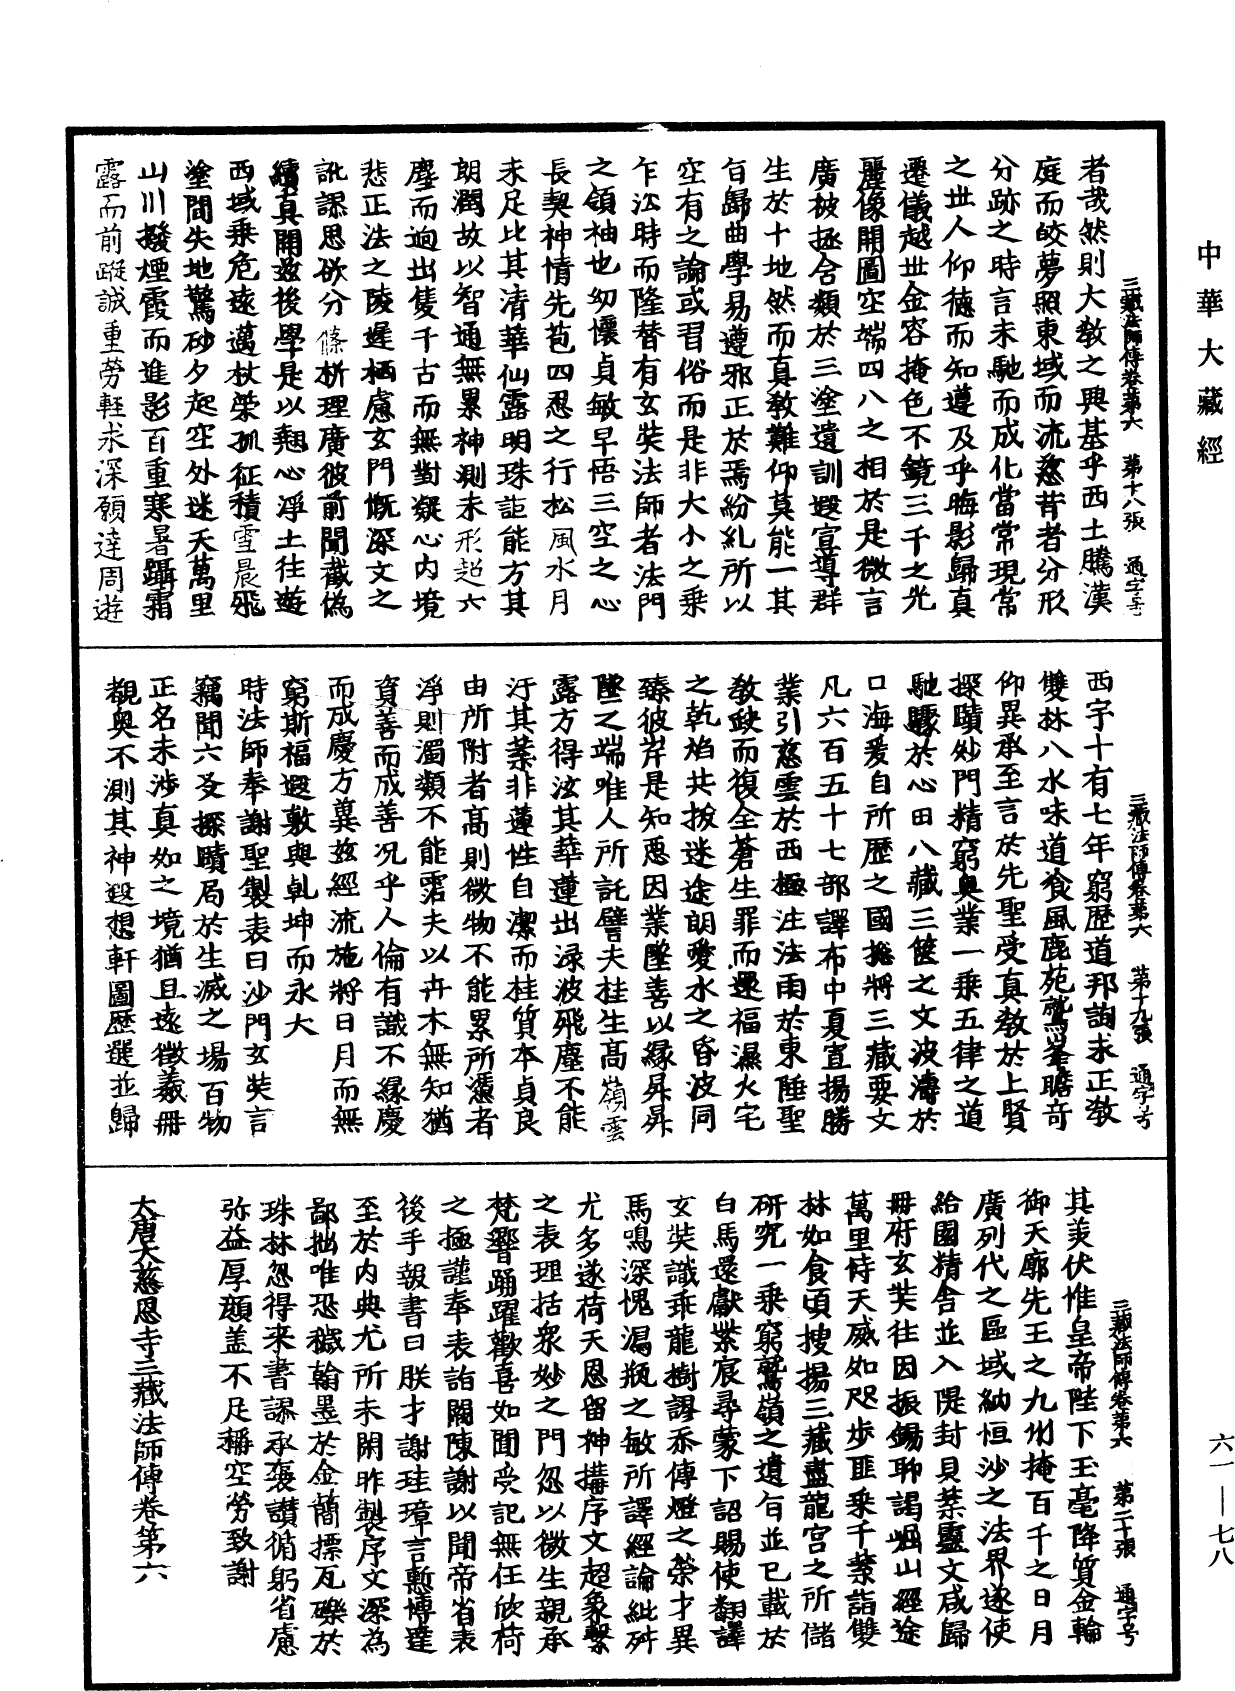 中華大藏經
三藏法師傳卷第六　第十八張　通字号
者哉然則大教之興基乎西土騰漢
庭而皎夢照東域而流慈昔者分形
分跡之時言未馳而成化當常現常
之世人仰德而知遵及乎晦影歸真
遷儀越世金容掩色不鏡三千之光
麗像開圖空端四八之相於是微言
廣被拯含類於三塗遺訓遐宣導群
生於十地然而真教難仰莫能一其
旨歸曲學易遵邪正於焉紛糺所以
空有之論或習俗而是非大小之乘
乍沿時而隆替有玄奘法師者法門
之領袖也幼懷貞敏早悟三空之心
長契神情先苞四忍之行松風水月
未足比其清華仙露明珠詎能方其
朗潤故以智通無累神測未形超六
塵而逈出隻千古而無對凝心內境
悲正法之陵遲栖慮玄門慨深文之
訛謬思欲分條析理廣彼前聞截偽
續真開茲後學是以翹心淨土往遊
西域乘危遠邁杖策孤征積雪晨飛
塗間失地驚砂夕起空外迷天萬里
山川撥煙霞而進影百重寒暑躡霜
露而前蹤誠重勞輕求深願達周遊
三藏法師傳卷第六　第十九張　通字号
西宇十有七年窮歷道邦詢求正教
雙林八水味道飡風鹿苑鷲峯瞻奇
仰異承至言於先聖受真教於上賢
探賾妙門精窮奧業一乘五律之道
馳驟於心田八藏三篋之文波濤於
口海爰自所歷之國摠將三藏要文
凡六百五十七部譯布中夏宣揚勝
業引慈雲於西極注法雨於東陲聖
教缺而復全蒼生罪而還福濕火宅
之乾焰共拔迷途朗愛水之昏波同
臻彼岸是知惡因業墜善以緣昇昇
墜之端唯人所託譬夫桂生高嶺雲
露方得泫其華蓮出渌波飛塵不能
汙其葉非蓮性自潔而桂質本貞良
由所附者高則微物不能累所憑者
淨則濁類不能霑夫以卉木無知猶
資善而成善況乎人倫有識不緣慶
而成慶方冀茲經流施將日月而無
窮斯福遐敷與乹坤而永大
時法師奉謝聖製表曰沙門玄奘言
竊聞六爻探賾局於生滅之場百物
正名未涉真如之境猶且遠徵羲冊
覩奧不測其神遐想軒圖歷選並歸
三藏法師傳卷第六　第二十張　通字号
其美伏惟皇帝陛下玉毫降質金輪
御天廓先王之九州掩百千之日月
廣列代之區域納恒沙之法界遂使
給園精舍並入隄封貝葉靈文咸歸
冊府玄奘往因振錫聊謁崛山經途
萬里恃天威如咫步匪乘千葉詣雙
林如食頃搜揚三藏盡龍宮之所儲
研究一乘窮鷲嶺之遺旨並已載於
白馬還獻紫宸尋蒙下詔賜使翻譯
玄奘識乖龍樹謬忝傳燈之榮才異
馬鳴深愧瀉瓶之敏所譯經論紕舛
尤多遂荷天恩留神搆序文超象繫
之表理括衆妙之門忽以微生親承
梵響踊躍歡喜如聞受記無任欣荷
之極謹奉表詣闕陳謝以聞帝省表
後手報書曰朕才謝珪璋言慙博達
至於內典尤所未閑昨製序文深為
鄙拙唯恐穢翰墨於金簡摽瓦礫於
珠林忽得來書謬承褒讃循躬省慮
弥益厚顏盖不足稱空勞致謝
大唐大慈恩寺三藏法師傳卷第六
六一—七八